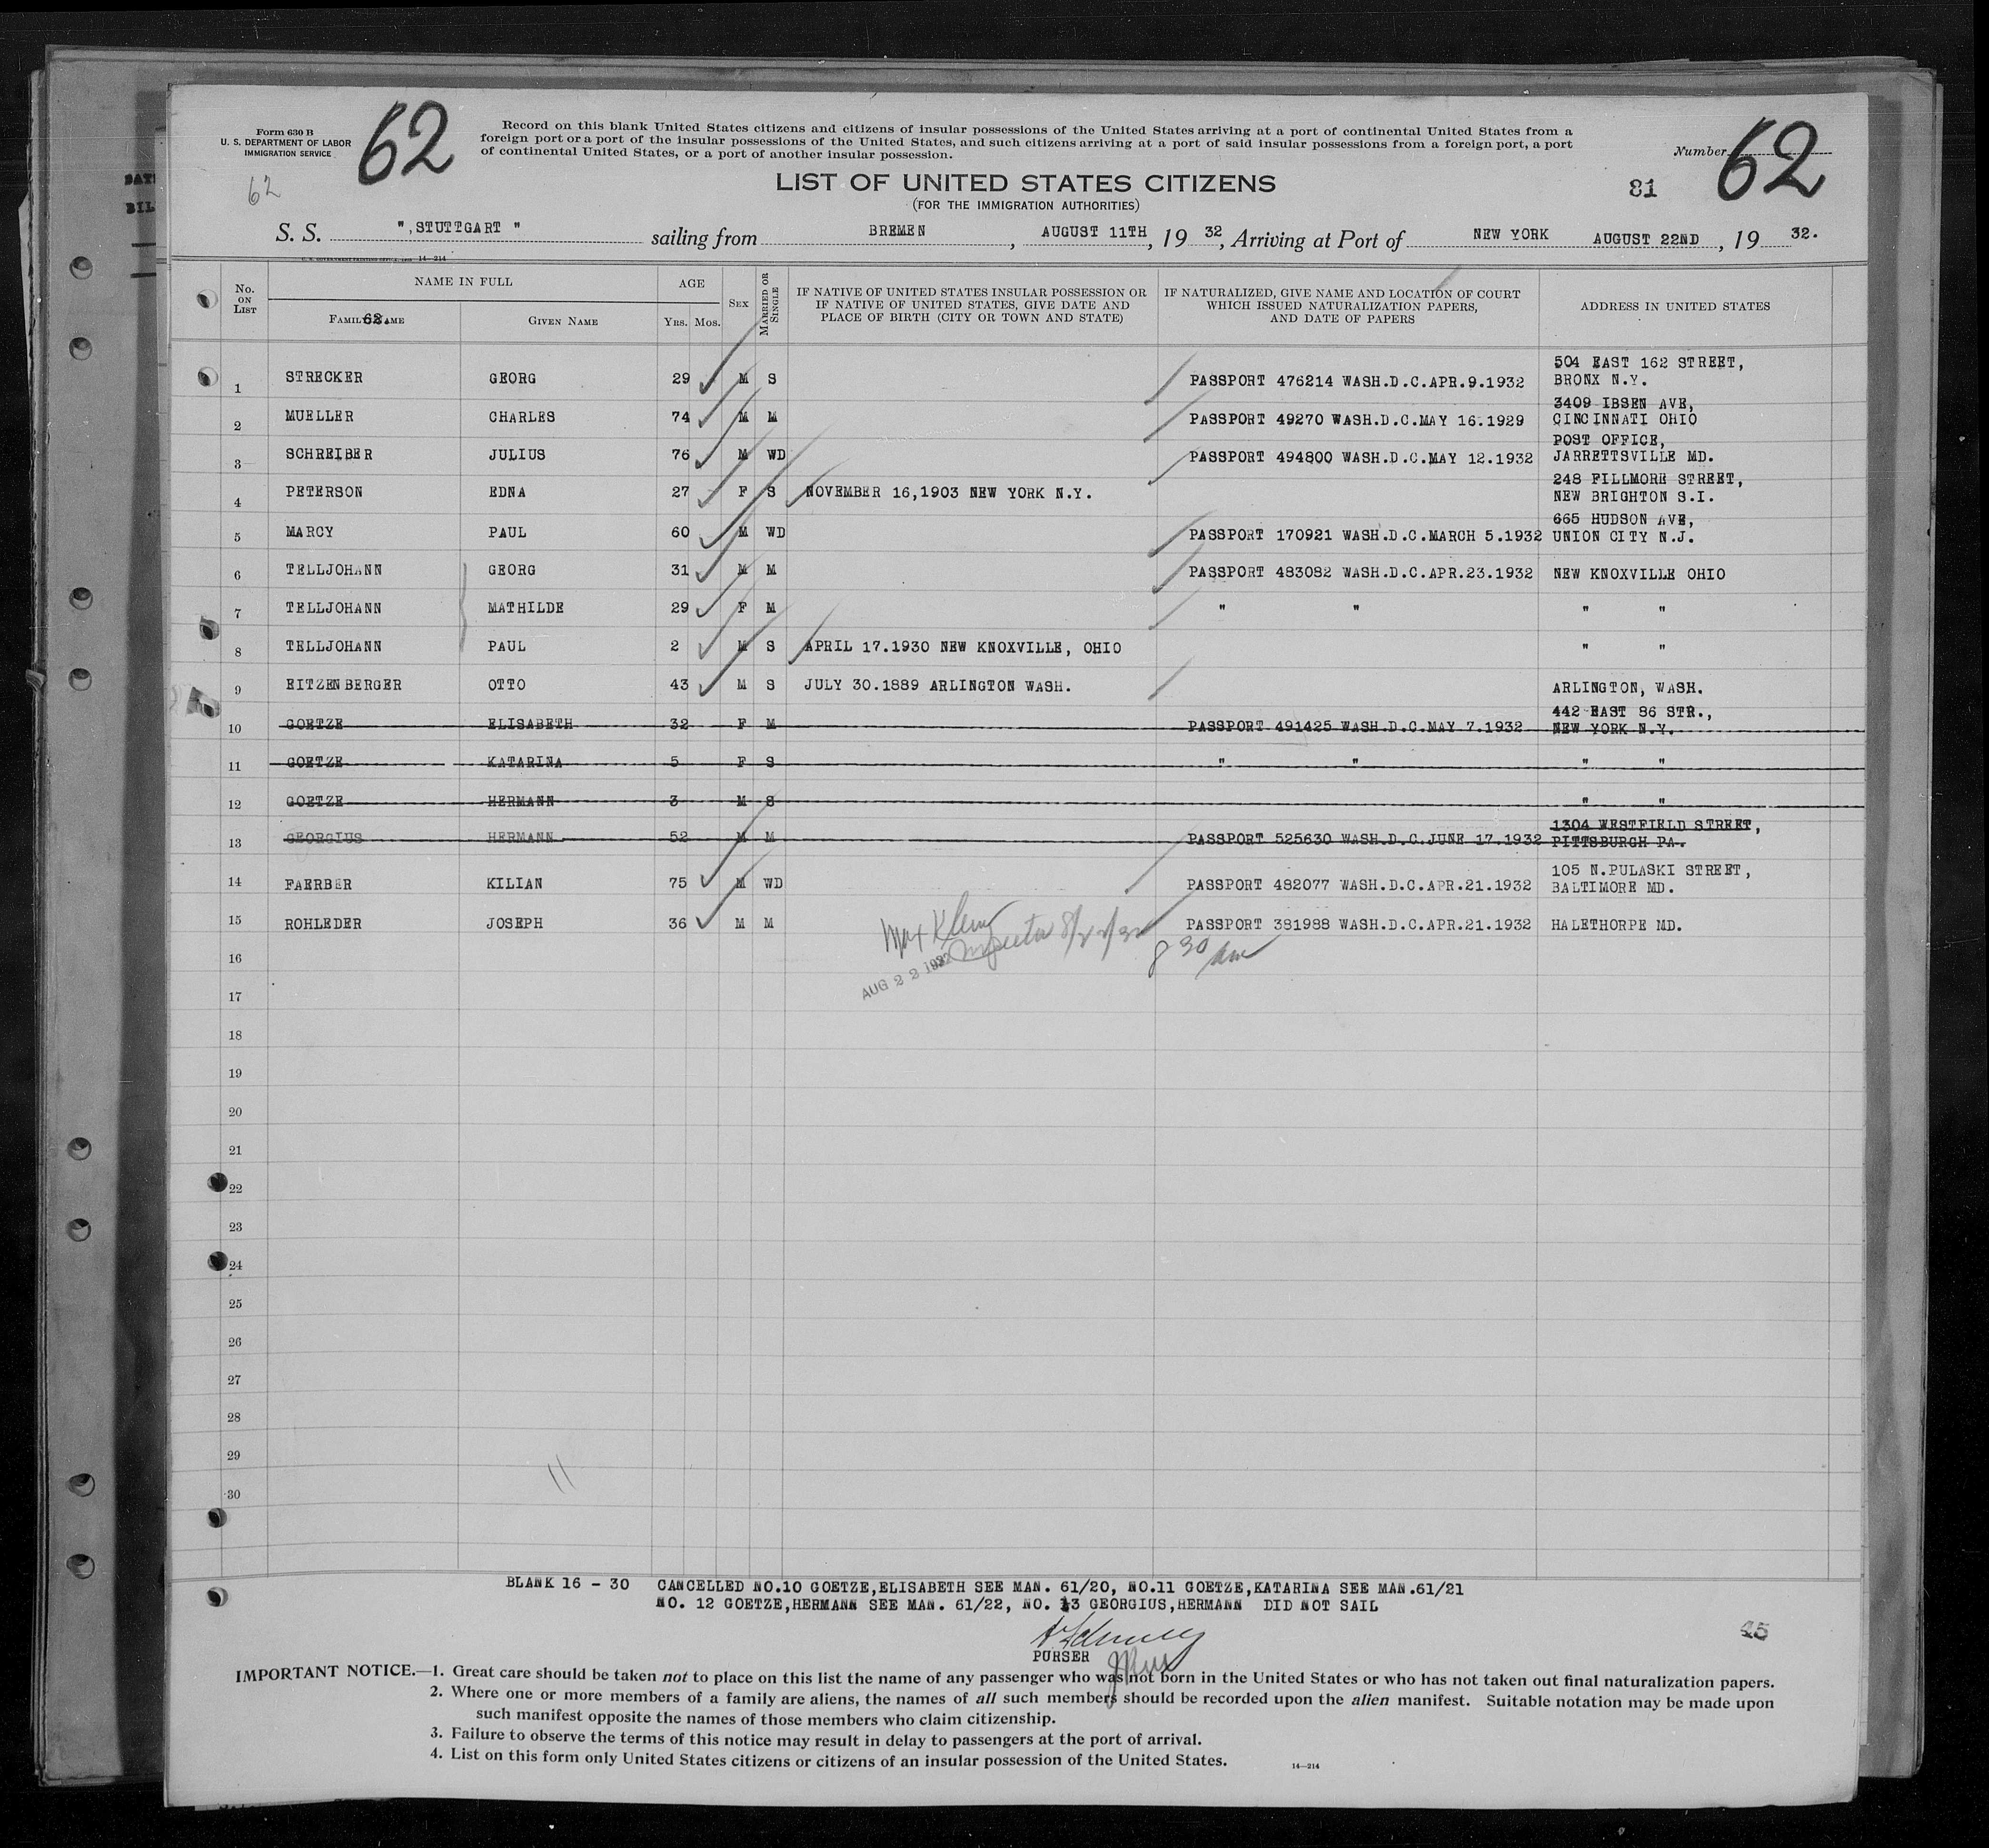 Form 630 B
U. S. DEPARTMENT OF LABOR
IMMIGRATION SERVICE
62
62
Record on this blank United States citizens and citizens of insular possessions of the United States arriving at a port of continental United States from a
foreign port or a port of the insular possessions of the United States, and such citizens arriving at a port of said insular possessions from a foreign port, a port
of continental United States, or a port of another insular possession.
Number 62
LIST OF UNITED STATES CITIZENS
(FOR THE IMMIGRATION AUTHORITIES)
81
S. S. ",STUTTGART " sailing from BREMEN, AUGUST 11TH, 19 32, Arriving at Port of NEW YORK AUGUST 22ND, 19 32.
14—214
No. ON LIST
NAME IN FULL
FAMILY NAME
62.
GIVEN NAME
AGE
YRS. MOS.
SEX
MARRIED OR SINGLE
IF NATIVE OF UNITED STATES INSULAR POSSESSION OR
IF NATIVE OF UNITED STATES, GIVE DATE AND
PLACE OF BIRTH (CITY OR TOWN AND STATE)
IF NATURALIZED, GIVE NAME AND LOCATION OF COURT
WHICH ISSUED NATURALIZATION PAPERS,
AND DATE OF PAPERS
ADDRESS IN UNITED STATES
1 STRECKER GEORG 29 M S PASSPORT 476214 WASH.D.C.APR.9.1932 504 EAST 162 STREET,
BRONX N.Y.
2 MUELLER CHARLES 74 M M PASSPORT 49270 WASH.D.C.MAY 16.1929 3409 IBSEN AVE,
CINCINNATI OHIO
3 SCHREIBER JULIUS 76 M WD PASSPORT 494800 WASH.D.C.MAY 12.1932 POST OFFICE,
JARRETTSVILLE MD.
4 PETERSON EDNA 27 F S NOVEMBER 16,1903 NEW YORK N.Y. 248 FILLMORE STREET,
NEW BRIGHTON S.I.
5 MARCY PAUL 60 M WD PASSPORT 170921 WASH.D.C.MARCH 5.1932 665 HUDSON AVE,
UNION CITY N.J.
6 TELLJOHANN GEORG 31 M M PASSPORT 483082 WASH.D.C.APR.23.1932 NEW KNOXVILLE OHIO
7 TELLJOHANN MATHILDE 29 F M " " " "
8 TELLJOHANN PAUL 2 M S APRIL 17.1930 NEW KNOXVILLE, OHIO " "
9 EITZENBERGER OTTO 43 M S JULY 30.1889 ARLINGTON WASH. ARLINGTON, WASH.
10 GOETZE ELISABETH 32 F M PASSPORT 491425 WASH.D.C.MAY 7.1932 442 EAST 86 STR.,
NEW YORK N.Y.
11 GOETZE KATARINA 5 F S " " " "
12 GOETZE HERMANN 3 M S " "
13 GEORGIUS HERMANN 52 M M PASSPORT 525630 WASH.D.C.JUNE 17.1932 1304 WESTFIELD STREET,
PITTSBURGH PA.
14 FAERBER KILIAN 75 M WD PASSPORT 482077 WASH.D.C.APR.21.1932 105 N.PULASKI STREET,
BALTIMORE MD.
15 ROHLEDER JOSEPH 36 M M PASSPORT 381988 WASH.D.C.APR.21.1932 HALETHORPE MD.
Max Klein
Inspector 8/22/32
8 30 am
AUG 22 1932
16
17
18
19
20
21
22
23
24
25
26
27
28
29
30
11
BLANK 16 - 30 CANCELLED NO.10 GOETZE,ELISABETH SEE MAN. 61/20, NO.11 GOETZE,KATARINA SEE MAN.61/21
NO. 12 GOETZE,HERMANN SEE MAN. 61/22, NO. 13 GEORGIUS,HERMANN DID NOT SAIL
PURSER
45
IMPORTANT NOTICE.—1. Great care should be taken not to place on this list the name of any passenger who was not born in the United States or who has not taken out final naturalization papers.
2. Where one or more members of a family are aliens, the names of all such members should be recorded upon the alien manifest. Suitable notation may be made upon
such manifest opposite the names of those members who claim citizenship.
3. Failure to observe the terms of this notice may result in delay to passengers at the port of arrival.
4. List on this form only United States citizens or citizens of an insular possession of the United States.
14—214